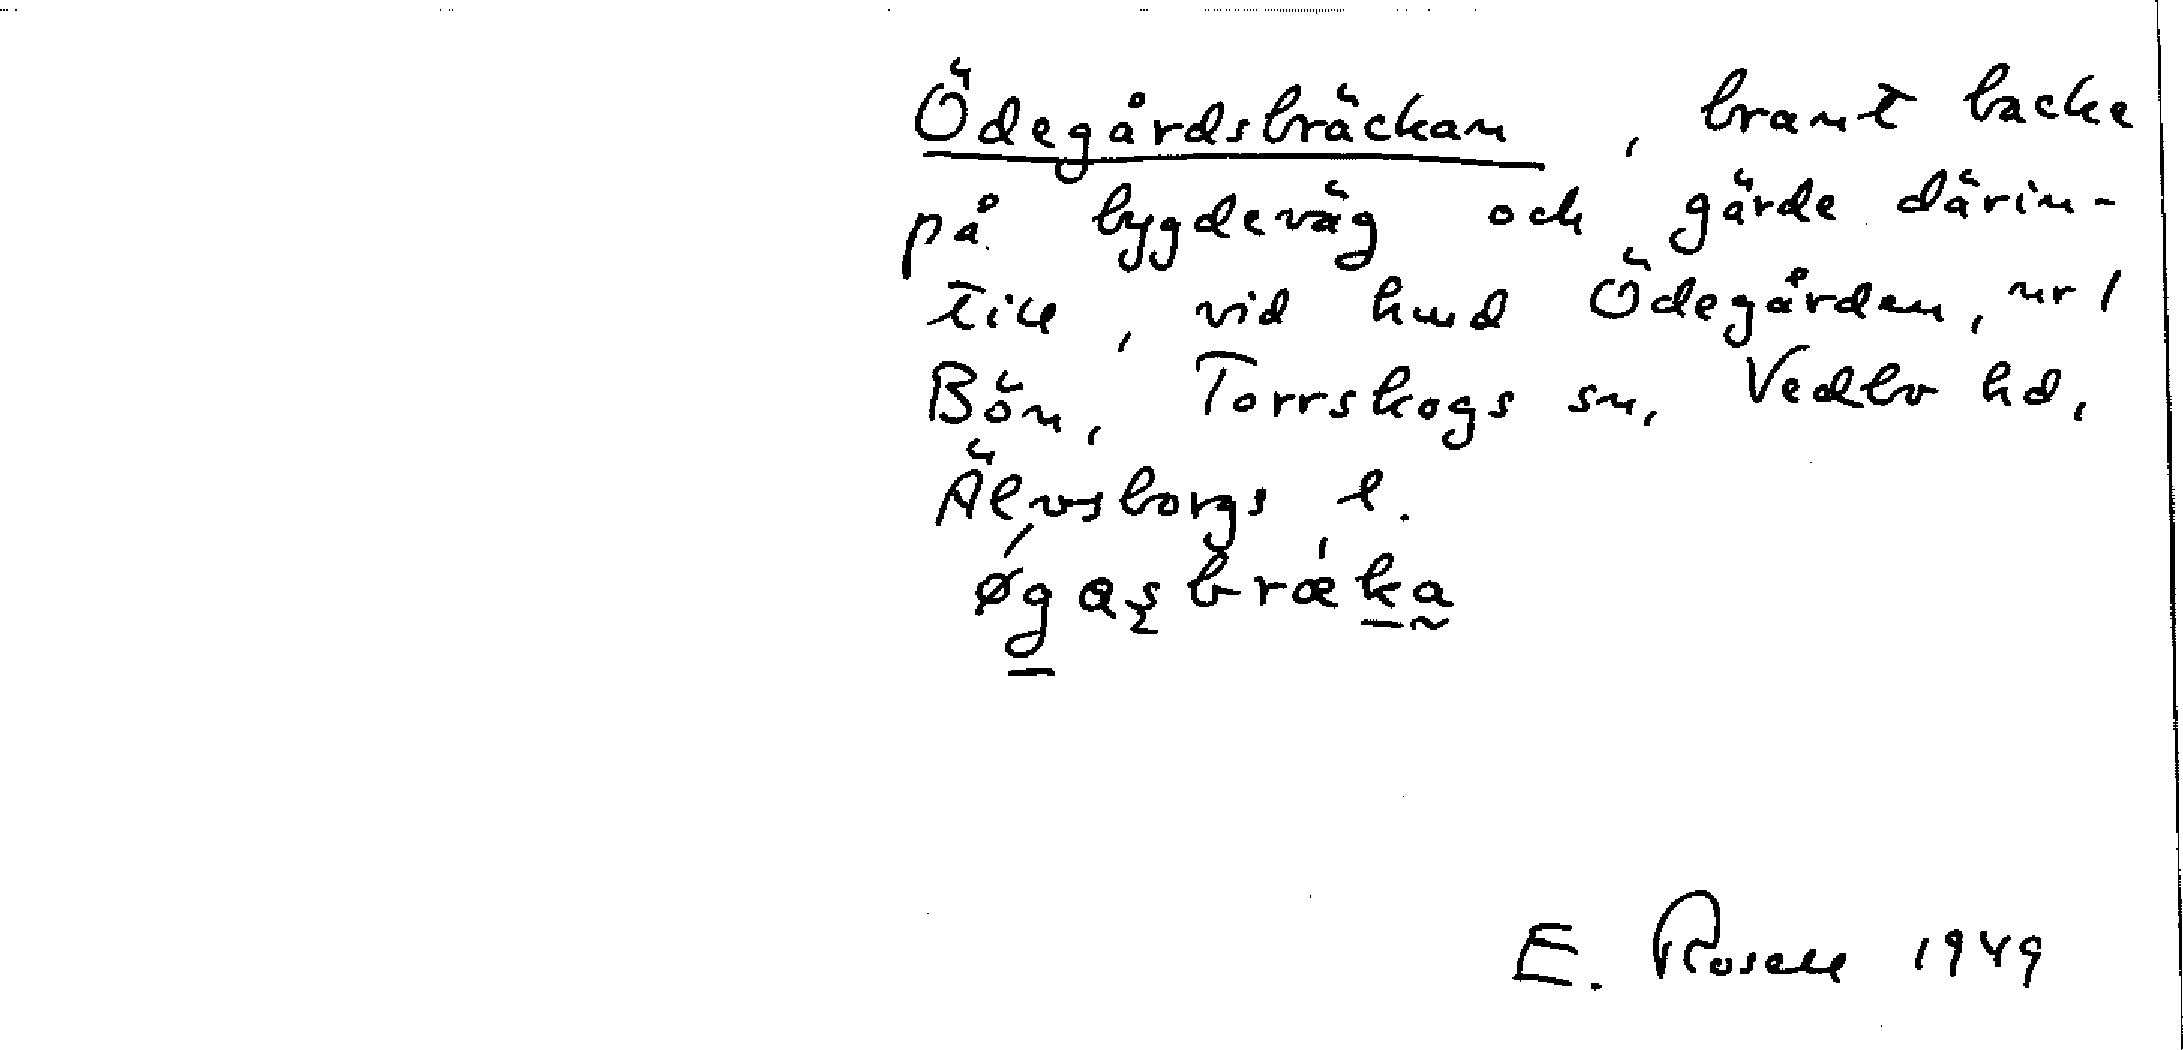 Ödegårdsbräckan, brant backe
på bygdeväg och gärde därin-
till, vid hmd Ödegården, nr 1
Bön, Torrskogs sn, Vedbo hd,
Älvsborgs l.
øgasbræka
E. Rosell 1949